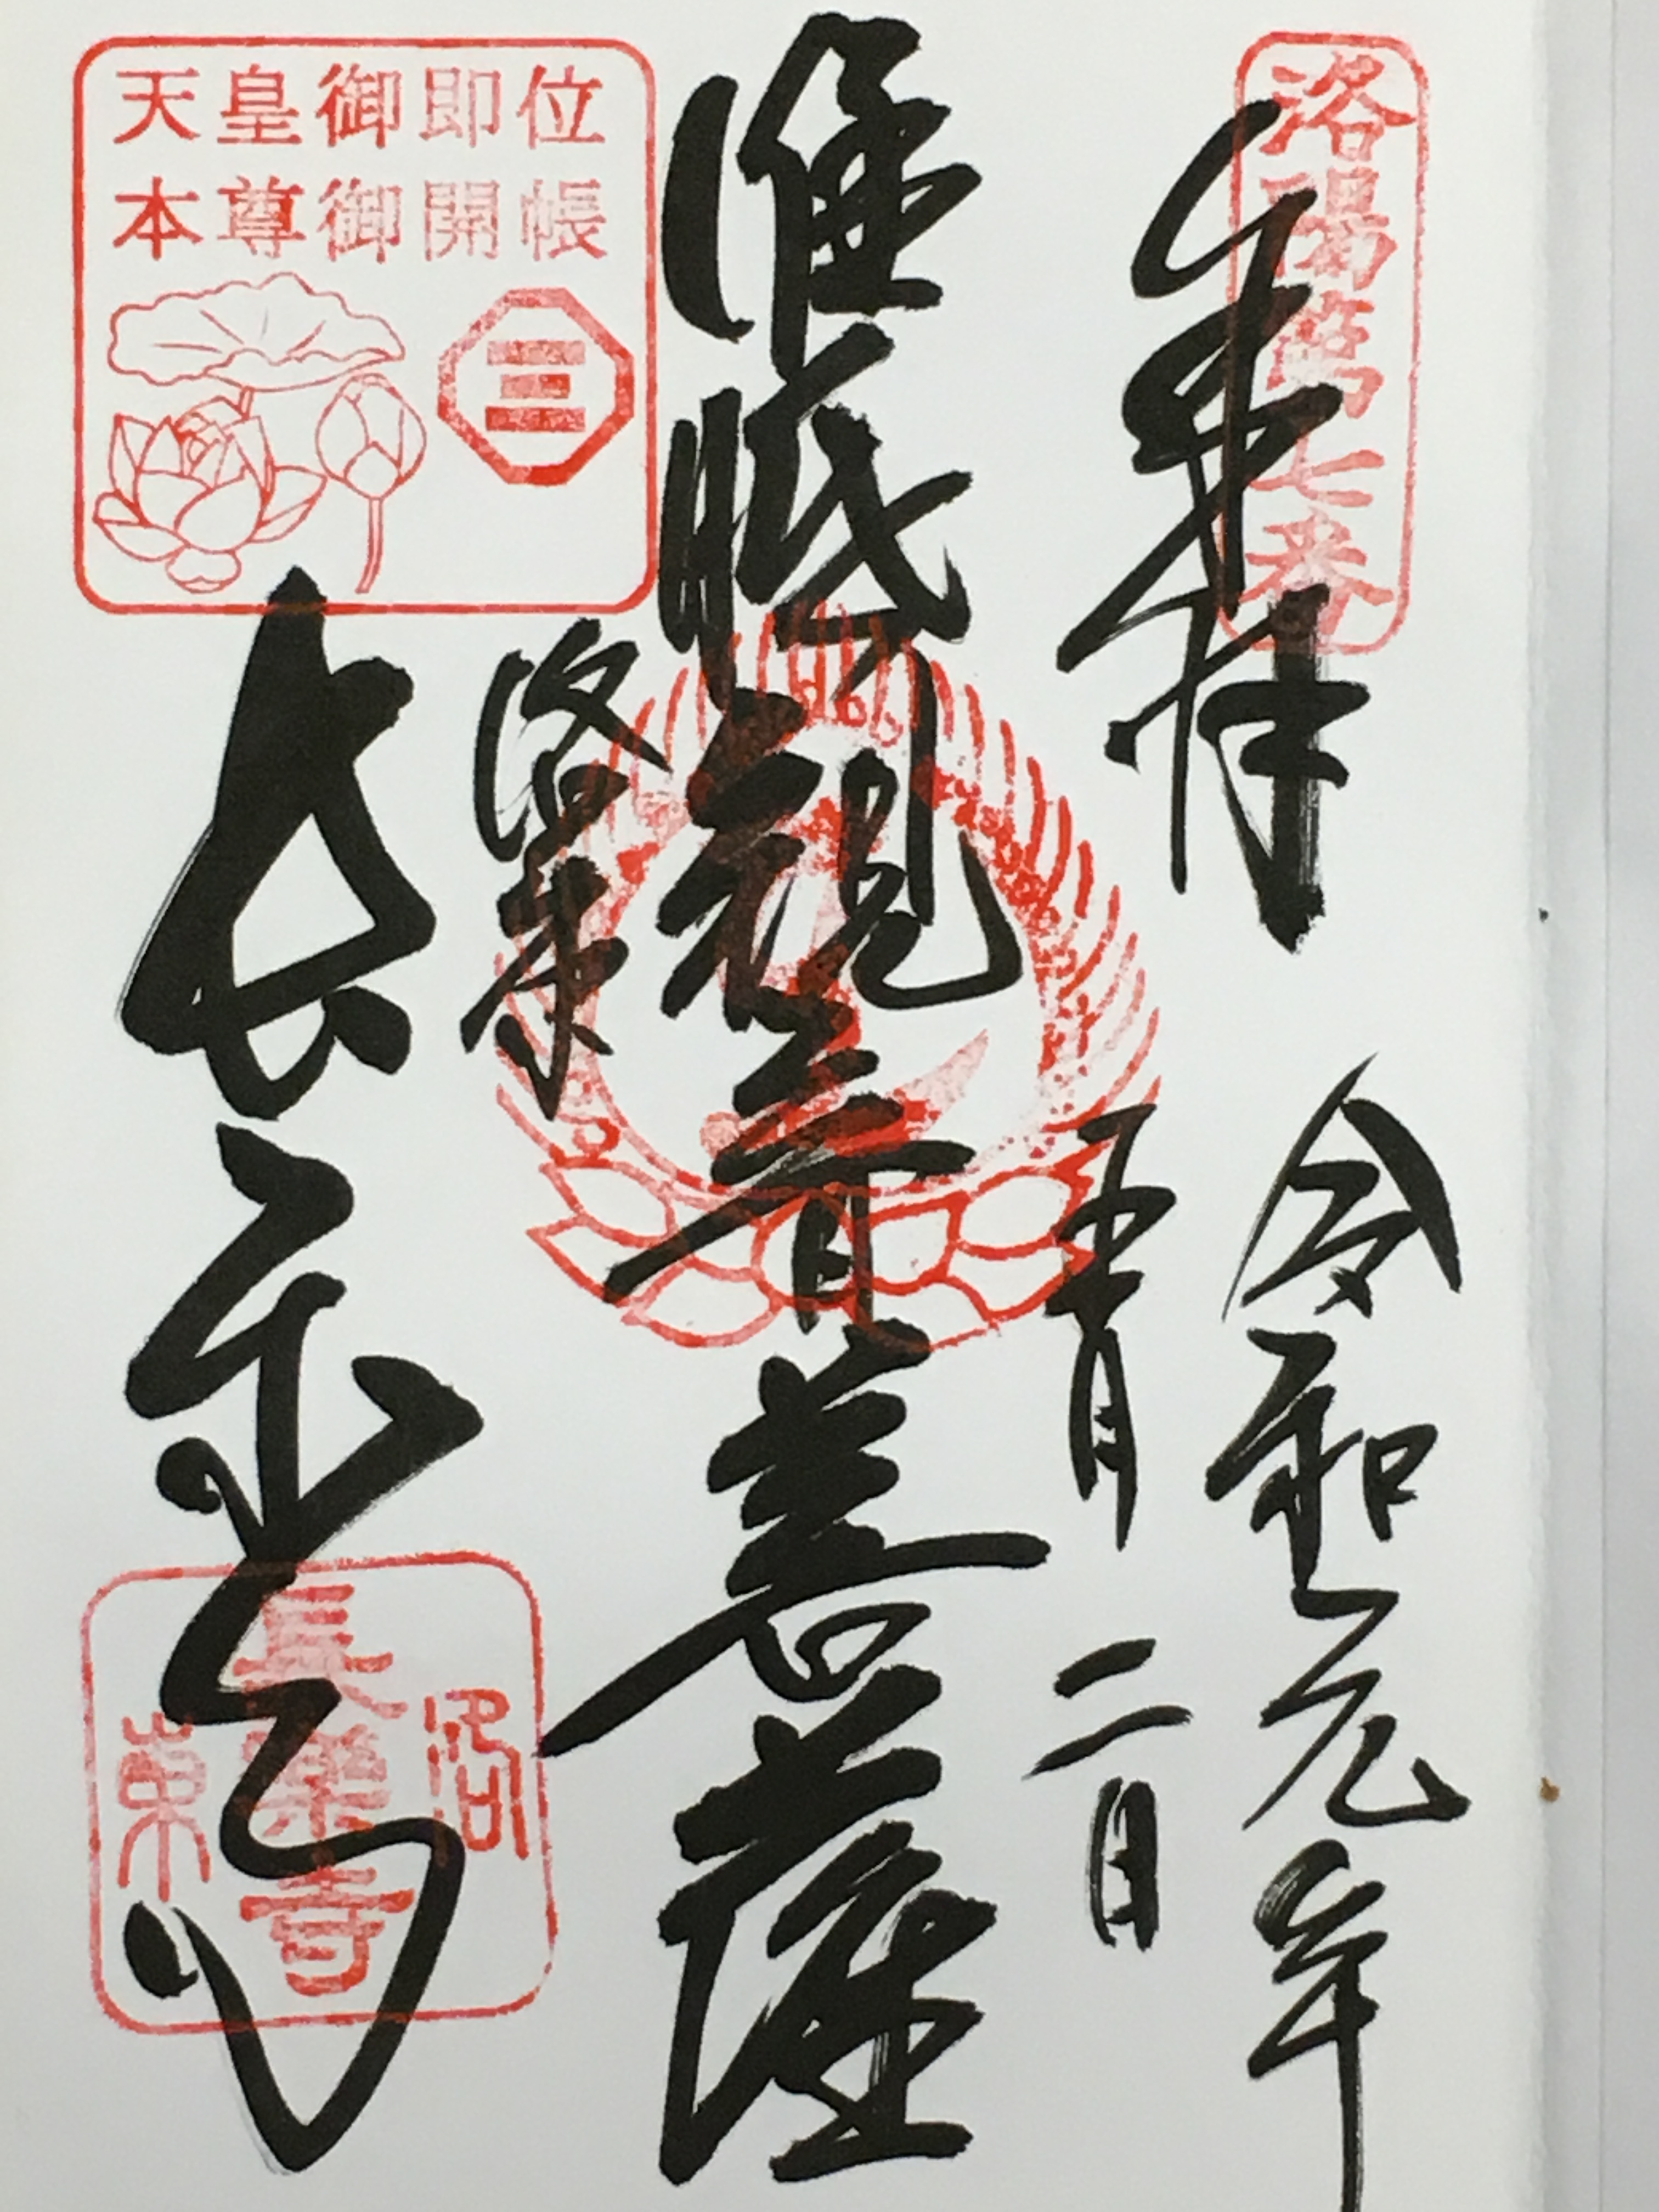 洛陽第七番
奉拝
令和元年
五月二日
准胝観音菩薩
洛東
長楽寺
天皇御即位
本尊御開帳
洛
長樂寺
東